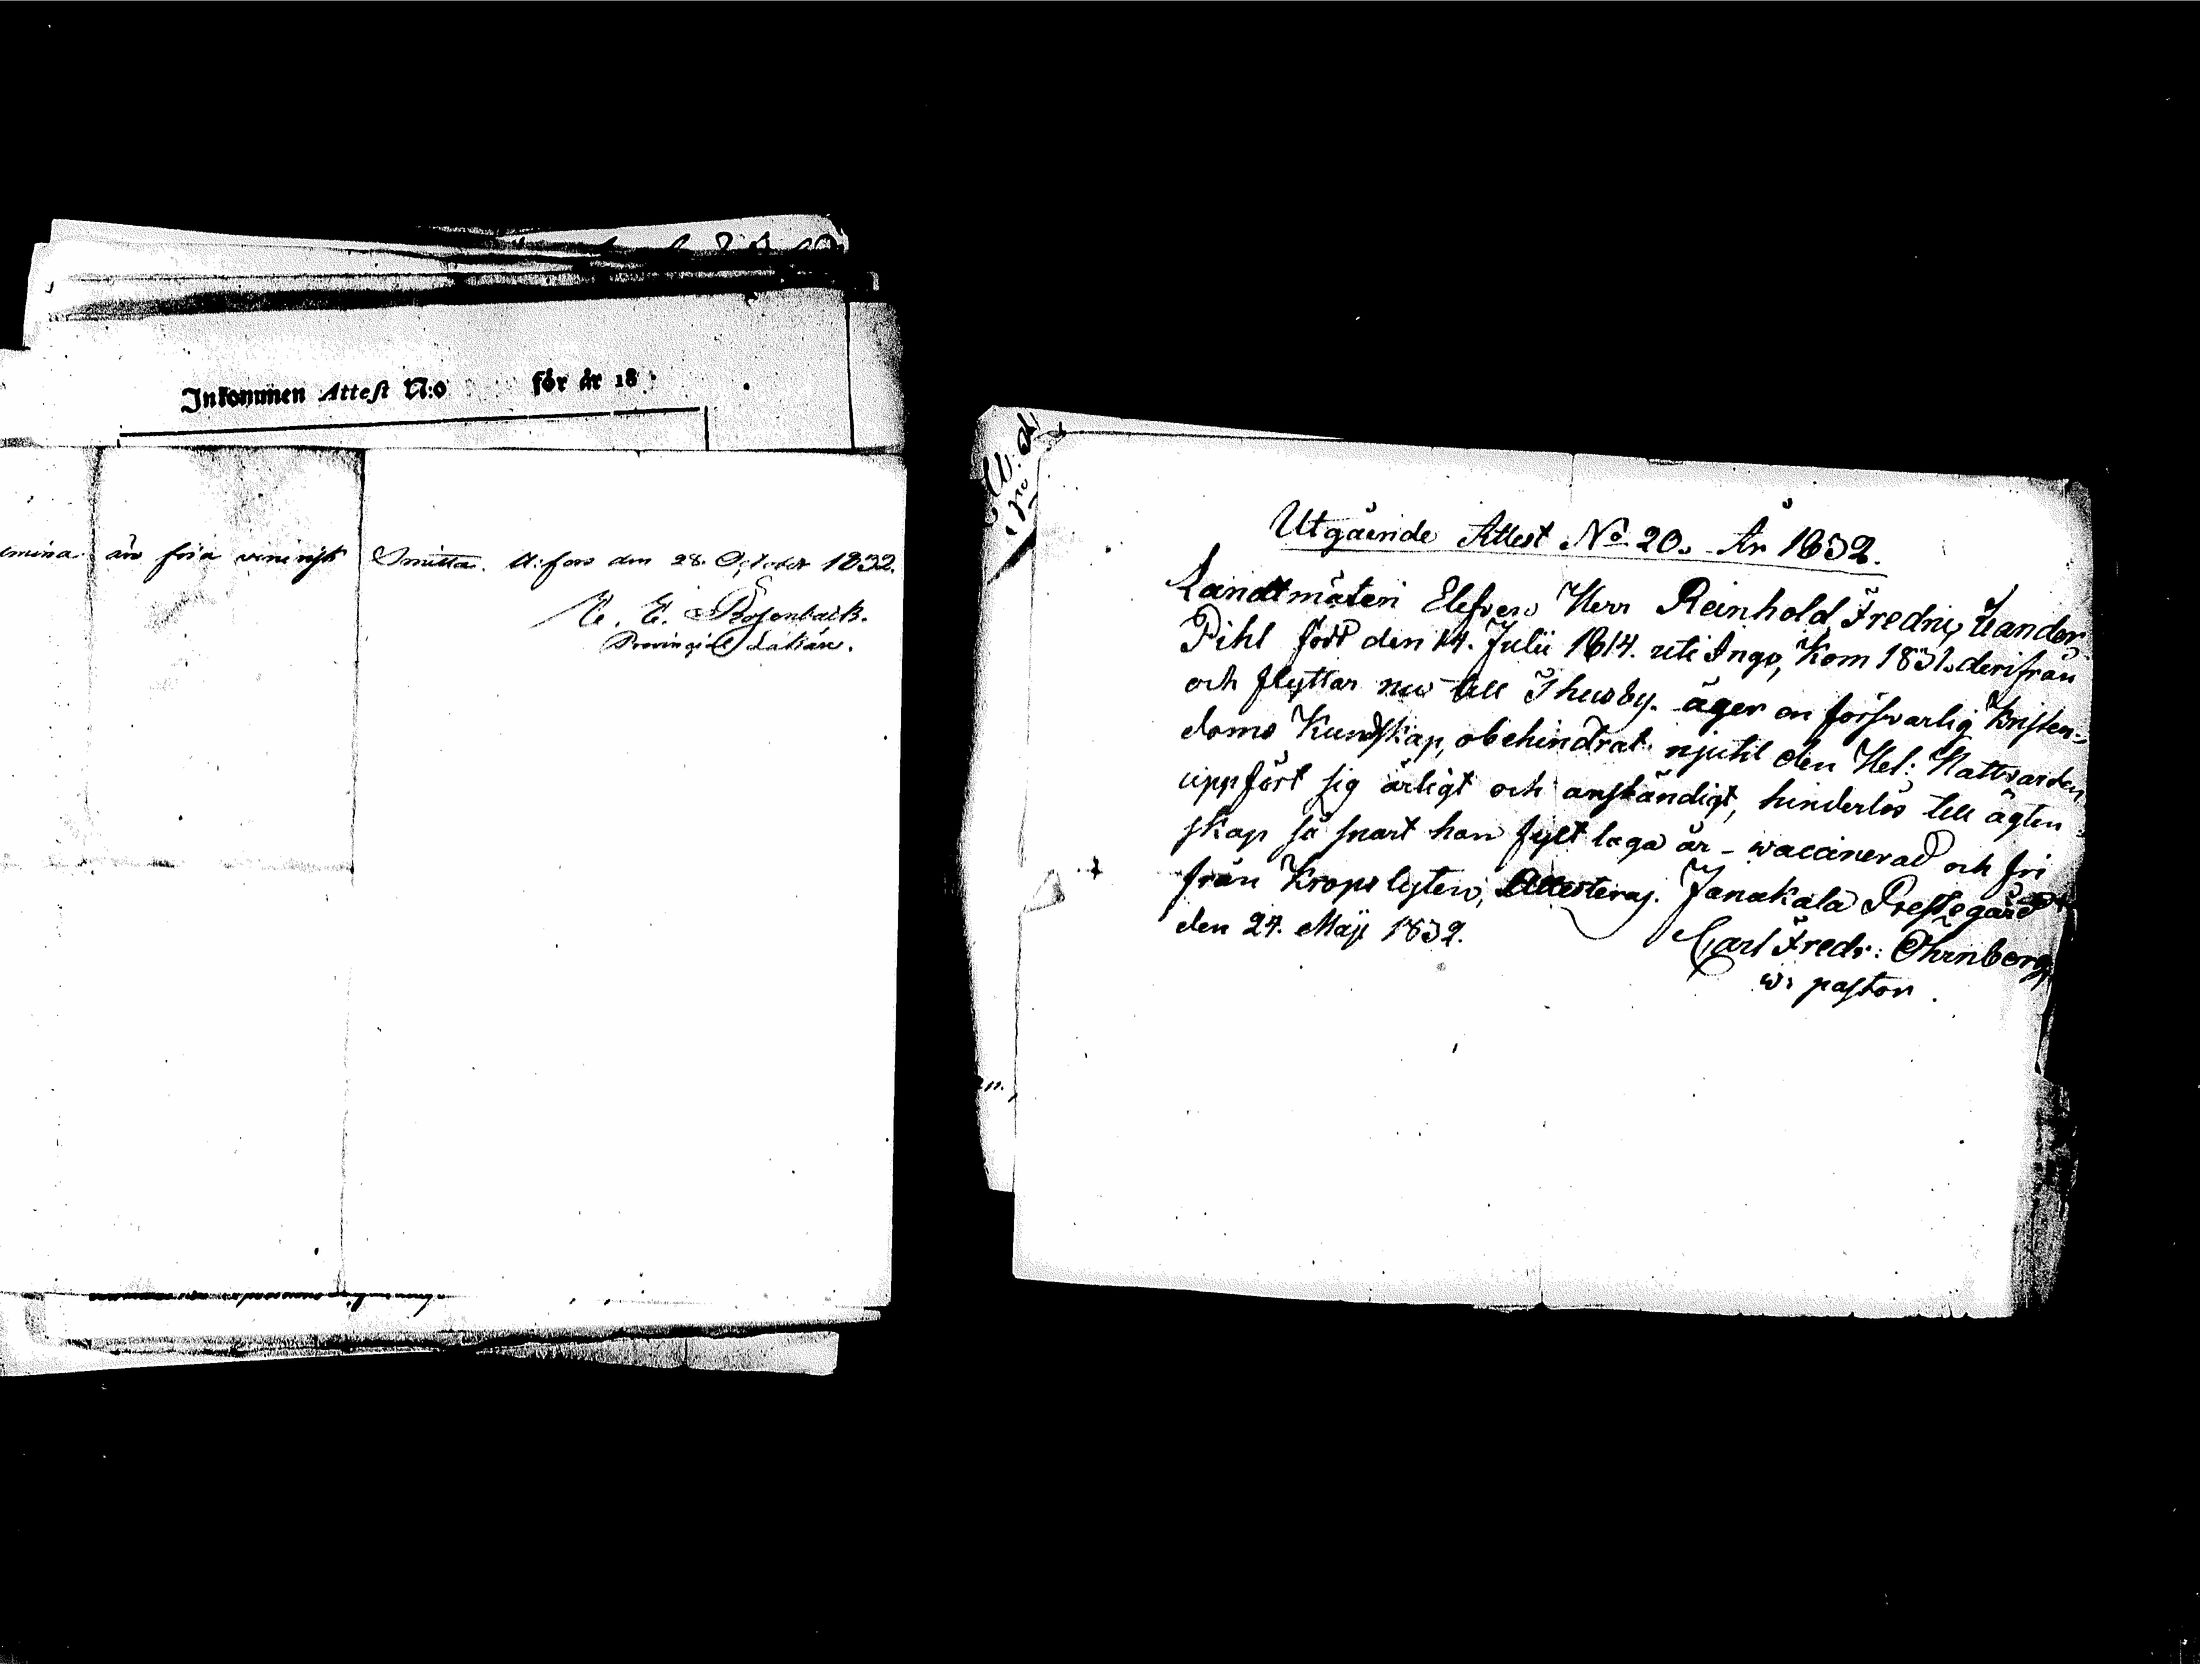 Inkommen Attest N:o för år 18
äro fria venerisk Smitta. H:fors den 28. October 1832.
Provincial Läkare.
Utgående Attest No 20. År 1832.
Landtmäteri Elefven Herr Reinhold Fredric Leander
Pihl född den 14. Julii 1814. uti Ingo, Kom 1831. derifrån
och flyttar nu till Thusby. äger en försvarlig Kristen-
doms Kundskap, obehindrat njutit den Hel: Nattvarden
uppfört sig ärligt och anständigt, hinderlös till ägten-
skap så snart han fylt laga år - waccinerad och fri
från Kropslyten, Attesteras. Janakala Prestegård
den 24. Maji 1832.
Carl Fredr: Öhrnberg
w: pastor.